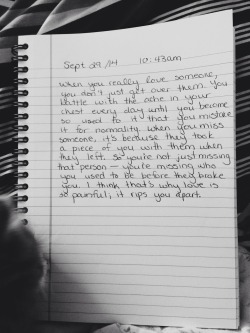 Sept 29/14 10:43am
When you really love someone,
you don't just get over them. You
battle with the ache in your
chest every day until you become
so used to it that you mistake
it for normality. When you miss
someone, it's because they took
a piece of you with them when
they left. So you're not just missing
that person – you're missing who
you used to be before they broke
you. I think that's why love is
so painful; it rips you apart.